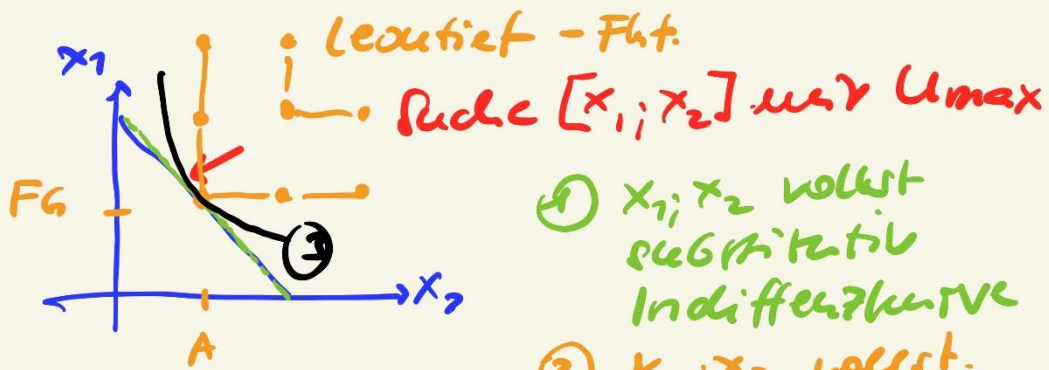 Leontief - Fkt.
x1
Suche [x1; x2] mit Umax
FG
① x1; x2 vollst
substitutiv
Indifferenzkurve
x2
A
② x1; x2 vollst.